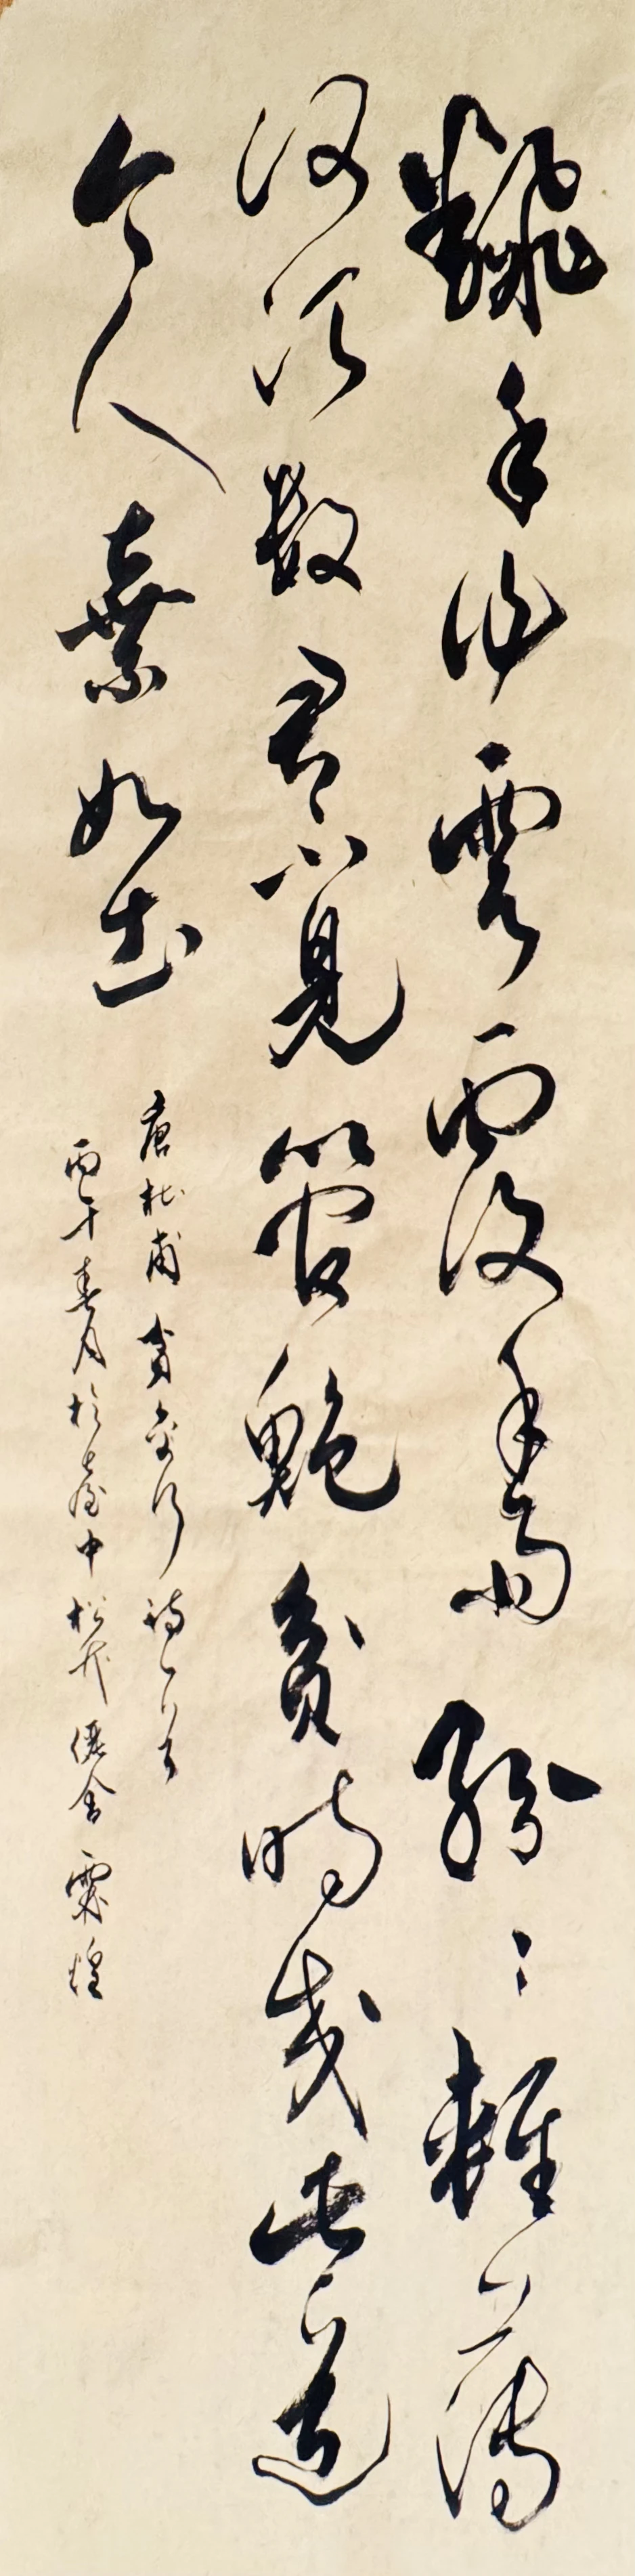 翻手作雲覆手雨紛々輕薄
何須數君不見管鮑貧時交此道
今人棄如土
唐杜甫貧交行詩一首
丙午春月於臺中松竹儷舍 霖煌